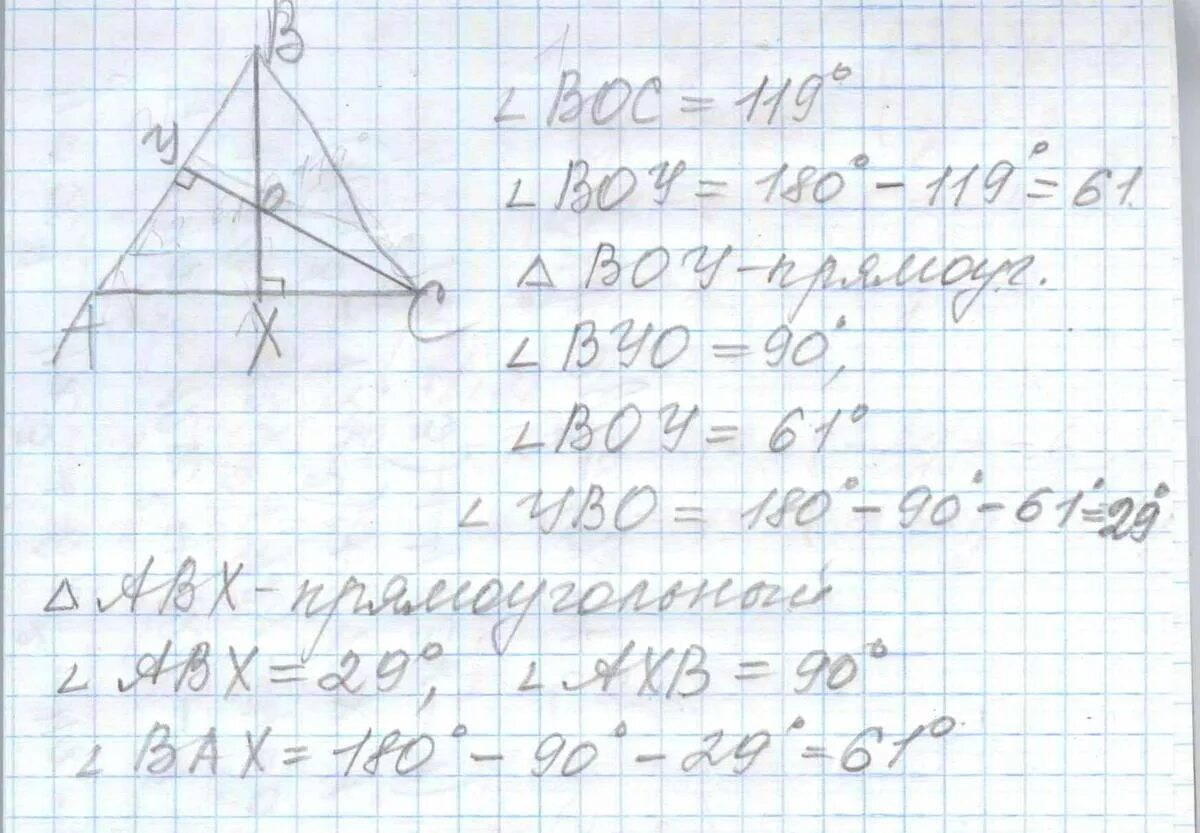 B
У
O
A
X
C
∠ BOC = 119°
∠ BOY = 180° - 119° = 61.
△ BOY - прямоуг.
∠ BYO = 90°,
∠ BOY = 61°
∠ YBO = 180° - 90° - 61° = 29°
△ ABX - прямоугольный
∠ ABX = 29°, ∠ AXB = 90°
∠ BAX = 180° - 90° - 29° = 61°